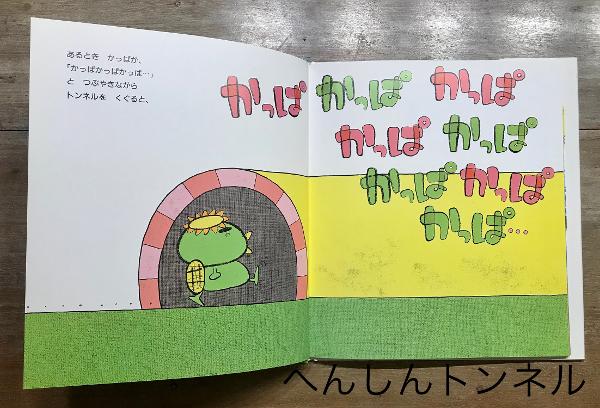 あるとき かっぱが、
「かっぱかっぱかっぱ…」
と つぶやきながら
トンネルを くぐると、
かっぱ かっぱ かっぱ
かっぱ かっぱ
かっぱ かっぱ
かっぱ…
へんしんトンネル